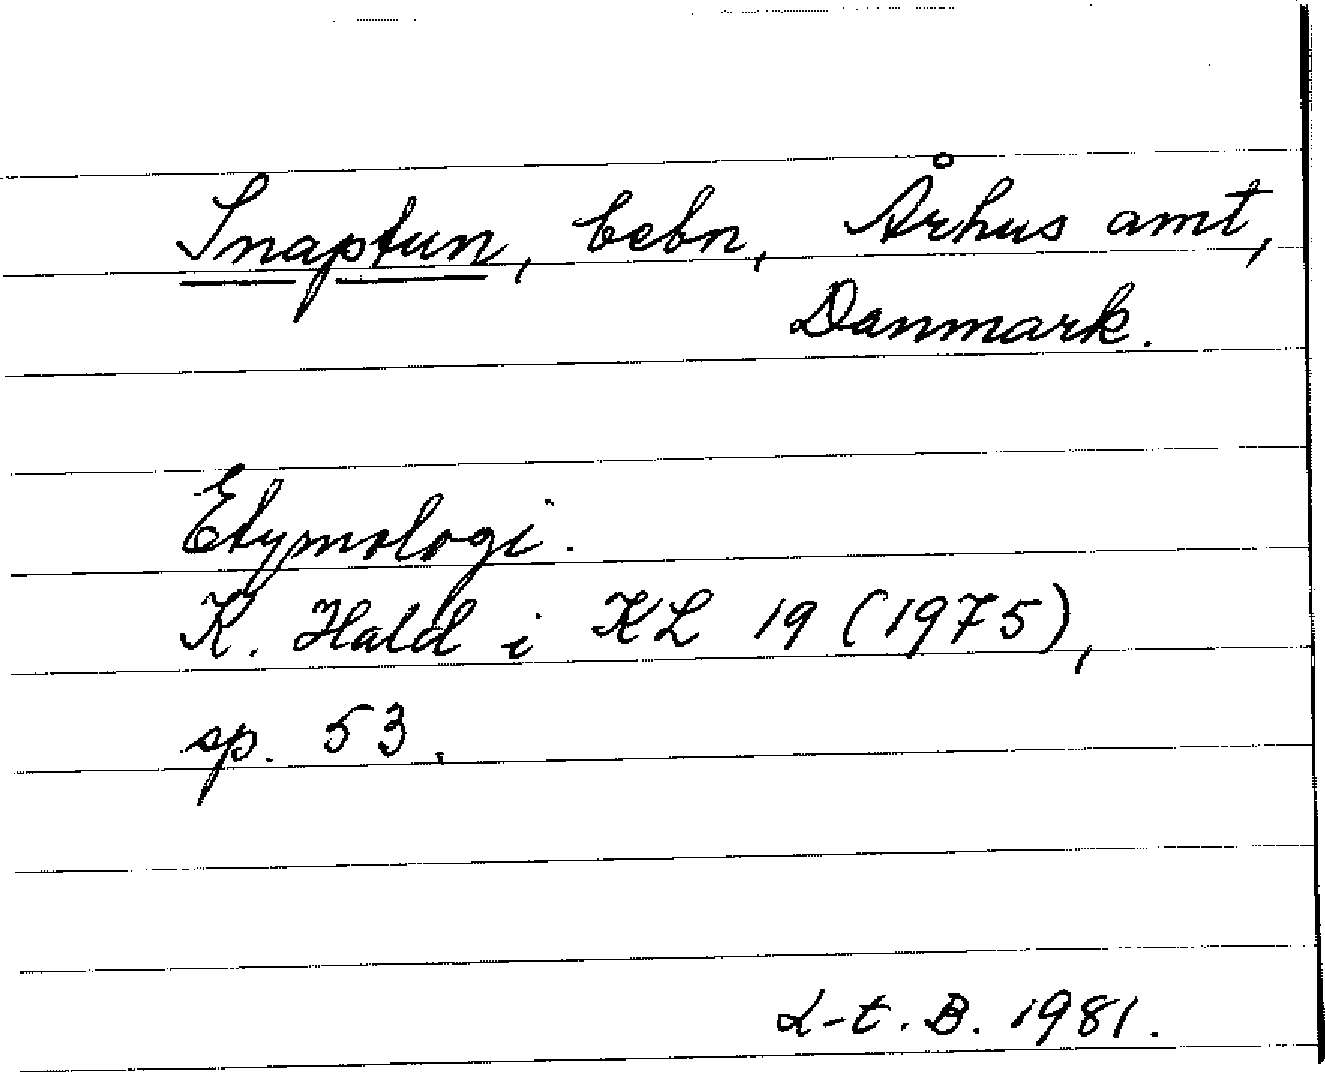 Snaptun, bebn, Århus amt,
Danmark.
Etymologi.
K. Hald i KL 19 (1975),
sp. 53.
L-t. B. 1981.